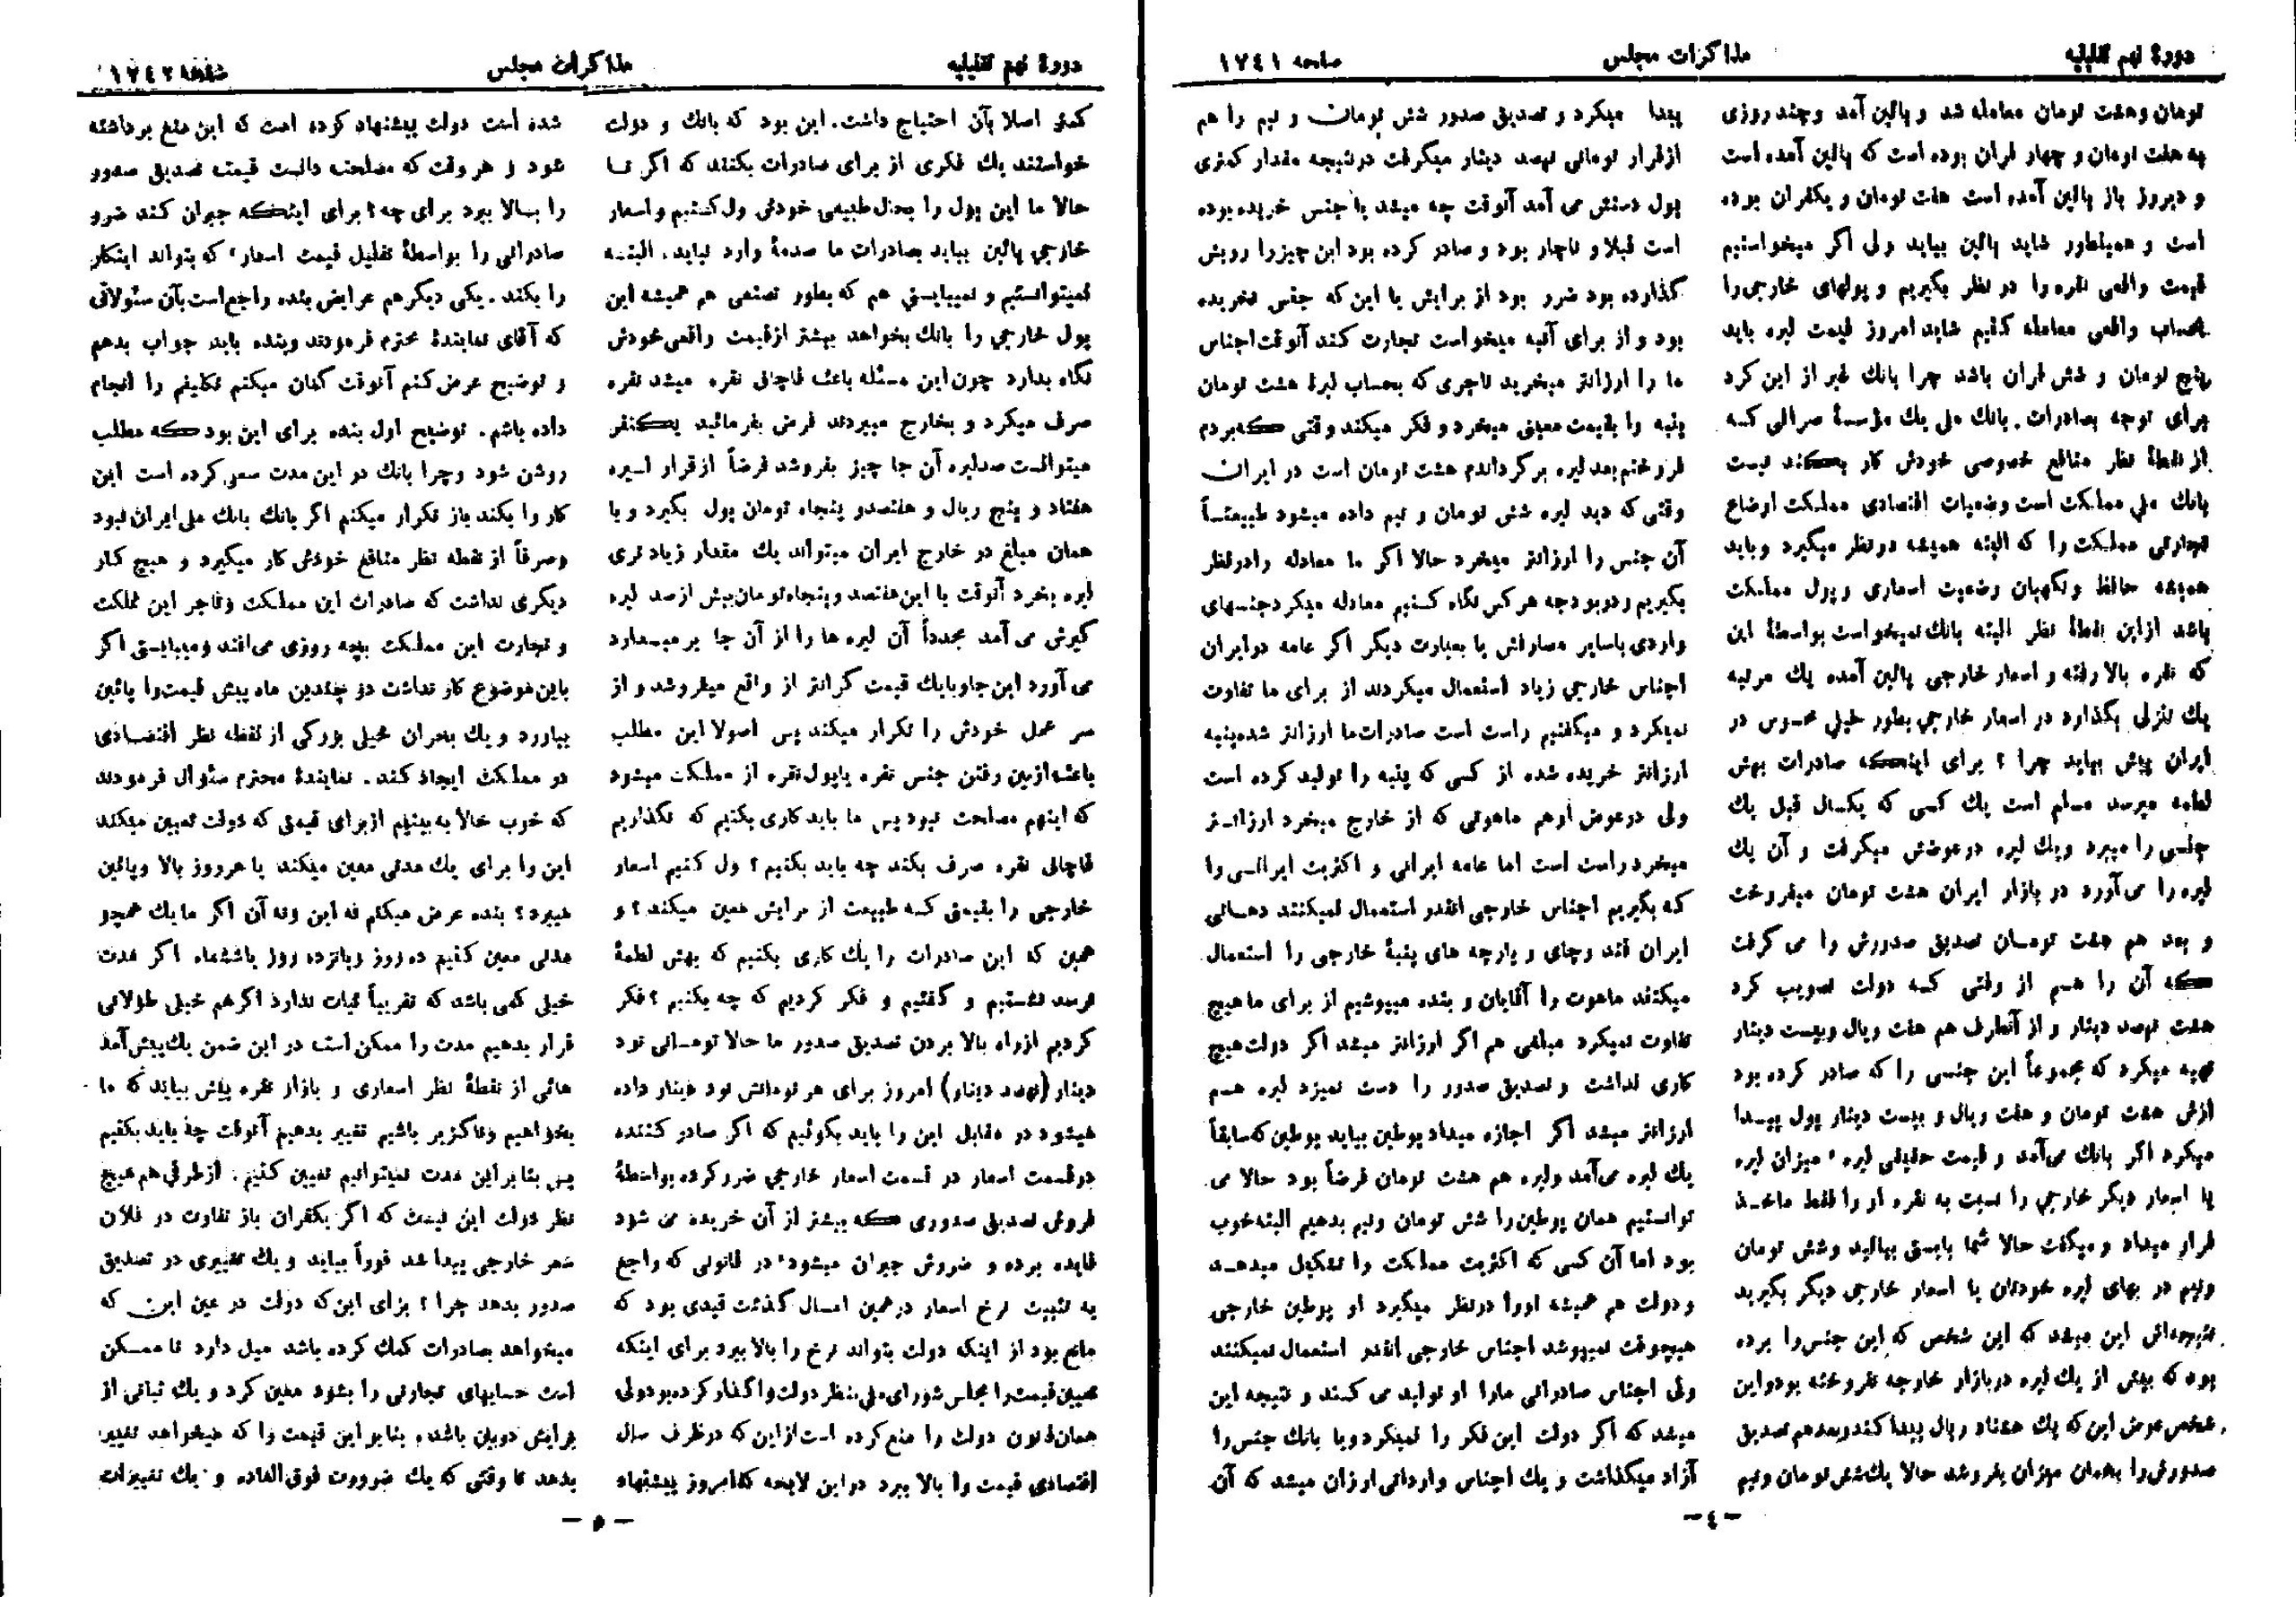 دورهٔ نهم تقنینیه
مذاکرات مجلس
صفحه ۱۷٤۱
تومان وهفت تومان معامله شد و پائین آمد وچند روزی
به هفت تومان و چهار قران بوده است که پائین آمده است
و دیروز باز پائین آمده است هفت تومان و یکقران بوده
است و همینطور شاید پائین بیاید ولی اگر میخواستیم
قیمت واقعی نقره را در نظر بگیریم و پولهای خارجی را
بحساب واقعی معامله کنیم شاید امروز قیمت لیره باید
پنج تومان و شش قران باشد چرا بانك غیر از این کرد
برای توجه بصادرات. بانك ملی یك مؤسسهٔ صرافی که
از نقطهٔ نظر منافع خصوصی خودش کار بکند نیست
بانك ملی مملکت است وضعیات اقتصادی مملکت اوضاع
تجارتی مملکت را که البته همیشه درنظر میگیرد وباید
همیشه حافظ ونگهبان وضعیت اسعاری و پول مملکت
باشد ازاین نقطهٔ نظر البته بانك نمیخواست بواسطهٔ این
که نقره بالا رفته و اسعار خارجی پائین آمده یك مرتبه
یك تنزلی بگذارد در اسعار خارجی بطور خیلی محسوس در
ایران پیش بیاید چرا ؟ برای اینکه صادرات بهش
لطمه میرسد مسلم است یك کسی که یکسال قبل یك
جنسی را میبرد ویك لیره درعوضش میگرفت و آن یك
لیره را می‌آورد در بازار ایران هشت تومان میفروخت
و بعد هم هفت تومان تصدیق صدورش را می گرفت
که آن را هم از وقتی که دولت تصویب کرد
هفت نهصد دینار و از آنطرف هم هفت ریال وبیست دینار
تهیه میکرد که مجموعاً این جنسی را که صادر کرده بود
ازش هشت تومان و هفت ریال و بیست دینار پول پیدا
میکرد اگر بانك می‌آمد و قیمت حقیقی لیره، میزان لیره
یا اسعار دیگر خارجی را نسبت به نقره او را فقط ماخذ
قرار میداد و میگفت حالا شما بایستی بیائید وشش تومان
ونیم در بهای لیره خودتان یا اسعار خارجی دیگر بگیرید
نتیجه‌اش این میشد که این شخص که این جنس را برده
بود که بیش از یك لیره دربازار خارجه نفروخته بود واین
شخص عوض این که یك هشتاد ریال پیدا کند وبعد هم تصدیق
صدورش را بهمان میزان بفروشد حالا یك شش تومان ونیم
پیدا میکرد و تصدیق صدور شش تومان و نیم را هم
ازقرار تومانی نهصد دینار میگرفت درنتیجه مقدار کمتری
پول دستش می آمد آنوقت چه میشد یا جنس خریده بوده
است قبلا و ناچار بود و صادر کرده بود این چیز را رویش
گذارده بود ضرر بود از برایش یا این که جنس نخریده
بود و از برای آتیه میخواست تجارت کند آنوقت اجناس
ما را ارزانتر میخرید تاجری که بحساب لیرهٔ هشت تومان
پنبه را بقیمت معینی میخرد و فکر میکند وقتی که بردم
فروختم بعد لیره برگرداندم هشت تومان است در ایران
وقتی که دید لیره شش تومان و نیم داده میشود طبیعتاً
آن جنس را ارزانتر میخرد حالا اگر ما معادله رادرنظر
بگیریم ودربودجه هرکس نگاه کنیم معادله میکرد جنسهای
واردی باسایر مصارفش یا بعبارت دیگر اگر عامه در ایران
اجناس خارجی زیاد استعمال میکردند از برای ما تفاوت
نمیکرد و میگفتیم راست است صادرات ما ارزانتر شده پنبه
ارزانتر خریده شده از کسی که پنبه را تولید کرده است
ولی درعوض اوهم ماهوتی که از خارج میخرد ارزانتر
میخرد راست است اما عامه ایرانی و اکثریت ایرانی را
که بگیریم اجناس خارجی انقدر استعمال نمیکنند دهاتی
ایران قند وچای و پارچه های پنبهٔ خارجی را استعمال
میکنند ماهوت را آقایان و بنده میپوشیم از برای ما هیچ
تفاوت نمیکرد مبلغی هم اگر ارزانتر میشد اگر دولت هیچ
کاری نداشت و تصدیق صدور را دست نمیزد لیره هم
ارزانتر میشد اگر اجازه میداد پوطین بیاید پوطین که سابقاً
یك لیره می‌آمد ولیره هم هشت تومان فرضاً بود حالا می
توانستیم همان پوطین را شش تومان ونیم بدهیم البته خوب
بود اما آن کسی که اکثریت مملکت را تشکیل میدهد
ودولت هم همیشه اورا درنظر میگیرد او پوطین خارجی
هیچوقت نمیپوشد اجناس خارجی انقدر استعمال نمیکنند
ولی اجناس صادراتی مارا او تولید می کند و نتیجه این
میشد که اگر دولت این فکر را نمیکرد ویا بانك جنس را
آزاد میگذاشت و یك اجناس وارداتی ارزان میشد که آن
- ٤ -
دورهٔ نهم تقنینیه
مذاکرات مجلس
صفحه ۱۷٤۲
کمتر اصلا بآن احتیاج داشت. این بود که بانك و دولت
خواستند یك فکری از برای صادرات بکنند که اگر تا
حالا ما این پول را بحال طبیعی خودش ول کنیم و اسعار
خارجی پائین بیاید بصادرات ما صدمهٔ وارد نیاید. البته
نمیتوانستیم و نمیبایستی هم که بطور تصنعی هم همیشه این
پول خارجی را بانك بخواهد بیشتر ازقیمت واقعی خودش
نگاه بدارد چون این مسئله باعث قاچاق نقره میشد نقره
صرف میکرد و بخارج میبردند فرض بفرمائید یکنفر
میتوانست صدلیره آن جا چیز بفروشد فرضاً ازقرار لیره
هفتاد و پنج ریال و هفتصدو پنجاه تومان پول بگیرد و با
همان مبلغ در خارج ایران میتواند یك مقدار زیاد تری
لیره بخرد آنوقت با این هفتصد و پنجاه تومان بیش از صد لیره
گیرش می آمد مجدداً آن لیره ها را از آن جا بر میدارد
می آورد این جا وبایك قیمت گرانتر از واقع میفروشد و از
سر عمل خودش را تکرار میکند پس اصولا این مطلب
باعث ازبین رفتن جنس نقره یاپول نقره از مملکت میشود
که اینهم مصلحت نبود پس ما باید کاری بکنیم که نگذاریم
قاچاق نقره صرف بکند چه باید بکنیم ؟ ول کنیم اسعار
خارجی را بقیمتی که طبیعت از برایش معین میکند ؟ و
همین که این صادرات را یك کاری بکنیم که بهش لطمهٔ
نرسد نشستیم و گفتیم و فکر کردیم که چه بکنیم ؟ فکر
کردیم ازراه بالا بردن تصدیق صدور ما حالا تومانی نود
دینار (نهصد دینار) امروز برای هر تومانش نود دینار داده
میشود در مقابل این را باید بگوئیم که اگر صادر کننده
درقسمت اسعار در قسمت اسعار خارجی ضرر کرده بواسطهٔ
فروش تصدیق صدوری که بیشتر از آن خریده می شود
فایده برده و ضررش جبران میشود، در قانونی که راجع
به تثبیت نرخ اسعار درهمین امسال گذشت قیدی بود که
مانع بود از اینکه دولت بتواند نرخ را بالا ببرد برای اینکه
تعیین قیمت را مجلس شورای ملی بنظر دولت واگذار کرده بود ولی
همان قانون دولت را منع کرده است از این که درظرف سال
اقتصادی قیمت را بالا ببرد در این لایحه که امروز پیشنهاد
شده است دولت پیشنهاد کرده است که این منع برداشته
شود و هر وقت که مصلحت دانست قیمت تصدیق صدور
را بالا ببرد برای چه ؟ برای اینکه جبران کند ضرر
صادراتی را بواسطهٔ تقلیل قیمت اسعار، که بتواند اینکار
را بکند. یکی دیگر هم عرایض بنده راجع است بآن سئولاتی
که آقای نمایندهٔ محترم فرمودند وبنده باید جواب بدهم
و توضیح عرض کنم آنوقت گمان میکنم تکلیفم را انجام
داده باشم. توضیح اول بنده برای این بود که مطلب
روشن شود وچرا بانك در این مدت سعی کرده است این
کار را بکند باز تکرار میکنم اگر بانك بانك ملی ایران نبود
وصرفاً از نقطه نظر منافع خودش کار میگیرد و هیچ کار
دیگری نداشت که صادرات این مملکت وتاجر این مملکت
و تجارت این مملکت بچه روزی می‌افتد ومیبایستی اگر
باین موضوع کار نداشت در چندین ماه پیش قیمت را پائین
بیاورد و یك بحران خیلی بزرگی از نقطه نظر اقتصادی
در مملکت ایجاد کند. نمایندهٔ محترم سئوال فرمودند
که خوب حالا به بینیم از برای قیمتی که دولت تعیین میکند
این را برای یك مدتی معین میکند یا هرروز بالا وپائین
میبرد؟ بنده عرض میکنم نه این ونه آن اگر ما یك همچو
مدتی معین کنیم ده روز و پانزده روز یاششماه اگر مدت
خیلی کمی باشد که تقریباً ثبات ندارد اگرهم خیلی طولانی
قرار بدهیم مدت را ممکن است در این ضمن یك پیش‌آمد
هائی از نقطهٔ نظر اسعاری و بازار نقره پیش بیاید که ما
بخواهیم وناگزیر باشیم تغییر بدهیم آنوقت چه باید بکنیم
پس بنابراین مدت نمیتوانیم تعیین کنیم. ازطرفی هم هیچ
نظر دولت این نیست که اگر یکقران باز تفاوت در فلان
شهر خارجی پیدا شد فوراً بیاید و یك تغییری در تصدیق
صدور بدهد چرا ؟ برای این که دولت در عین این که
میخواهد بصادرات کمك کرده باشد میل دارد تا ممکن
است حسابهای تجارتی را بشود معین کرد و یك ثباتی از
برایش دربین باشد، بنابراین قیمت را که میخواهد تغییر
بدهد تا وقتی که یك ضرورت فوق العاده و یك تغییرات
- ٥ -